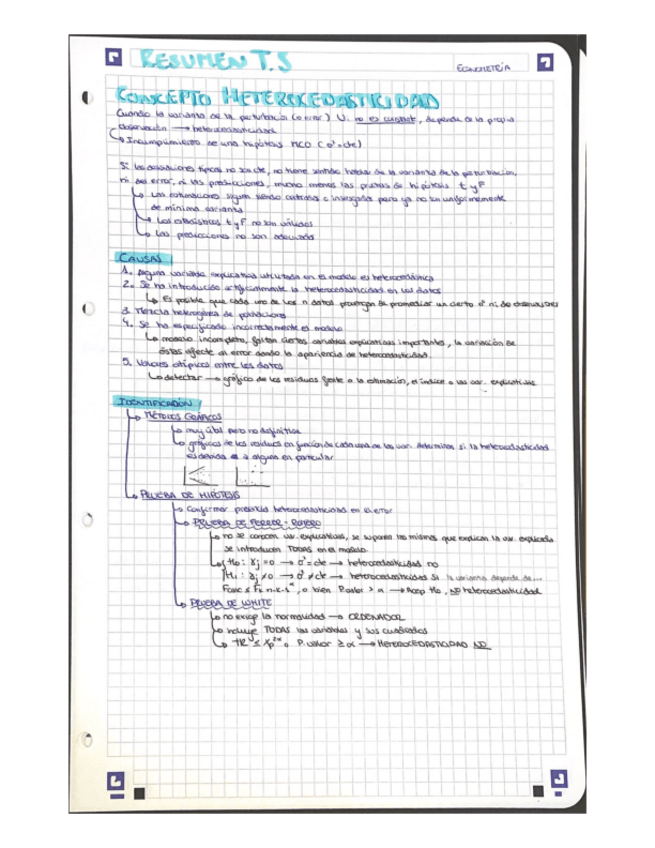 RESUMEN T.5
ECONOMETRÍA
CONCEPTO HETEROCEDASTICIDAD
Cuando la varianza de la perturbación (o error) Ui no es constante, depende de la propia
observación → heterocedasticidad
↳ Incumplimiento de una hipótesis MCO (σ²=cte)
Si las desviaciones típicas no son cte, no tiene sentido hablar de la varianza de la perturbación,
ni del error, ni las predicciones, mucho menos las pruebas de hipótesis t y F
↳ Las estimaciones siguen siendo centradas e insesgadas pero ya no son uniformemente
de mínima varianza
↳ Los estadísticos t y F no son válidos
↳ Las predicciones no son adecuadas
CAUSAS
1. Alguna variable explicativa utilizada en el modelo es heterocedástica
2. Se ha introducido artificialmente la heterocedasticidad en los datos
↳ Es posible que cada uno de los n datos provengan de promediar un cierto nº ni de observaciones
3. Mezcla heterogénea de poblaciones
4. Se ha especificado incorrectamente el modelo
↳ modelo incompleto, faltan ciertas variables explicativas importantes, la variación de
éstas afecte al error dando la apariencia de heterocedasticidad.
5. Valores atípicos entre los datos
↳ detectar → gráfico de los residuos frente a la estimación, el índice o las var. explicativas
IDENTIFICACIÓN
↳ MÉTODOS GRÁFICOS
↳ muy útil pero no definitiva
↳ gráficos de los residuos en función de cada una de las var. determinan si la heterocedasticidad
es debida a alguna en particular
↳ PRUEBA DE HIPÓTESIS
↳ Confirmar presencia heterocedasticidad en el error
↳ PRUEBA DE
↳ no se conocen var. explicativas, se supone las mismas que explican la var. explicada
se introducen TODAS en el modelo.
↳ H0: γj = 0 → σ² = cte → heterocedasticidad no
H1: γj ≠ 0 → σ² ≠ cte → heterocedasticidad si la varianza depende de...
o bien P.valor > α → Acep H0, NO heterocedasticidad
↳ PRUEBA DE WHITE
↳ no exige la normalidad → ORDENADOR
↳ incluye TODAS las variables y sus cuadrados
P.valor ≥ α → HETEROCEDASTICIDAD NO